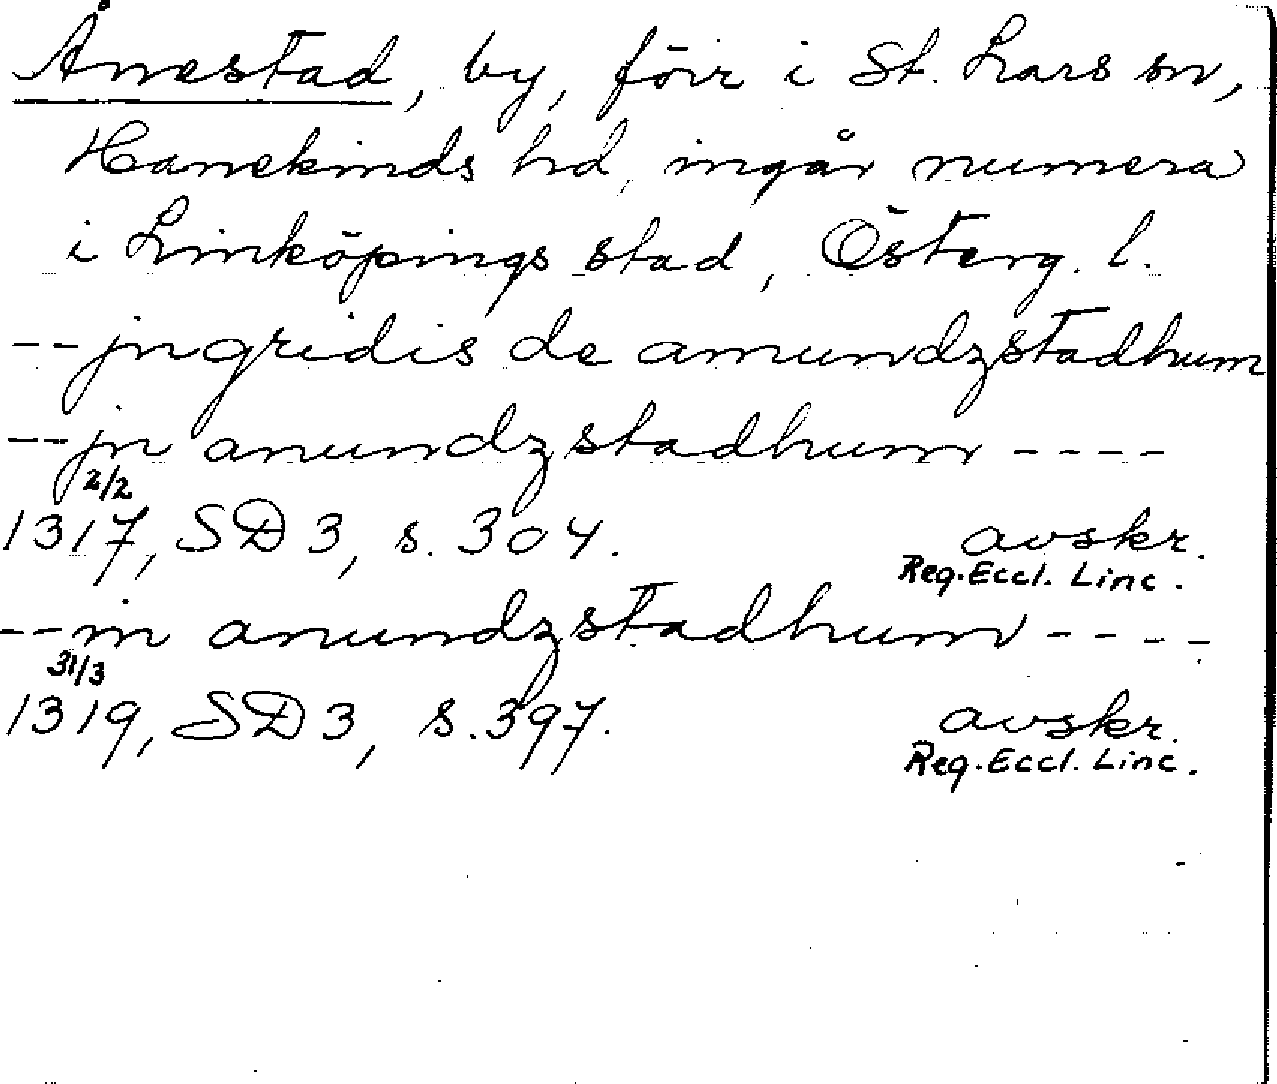 Ånestad, by, förr i St. Lars sn,
Hanekinds hd, ingår numera
i Linköpings stad, Österg. l.
-- jngridis de amundzstadhum
-- jn anundzstadhum ----
2/2
1317, SD 3, s. 304. avskr.
Reg. Eccl. Linc.
-- in anundzstadhum ----
31/3
1319, SD 3, s. 397. avskr.
Reg. Eccl. Linc.